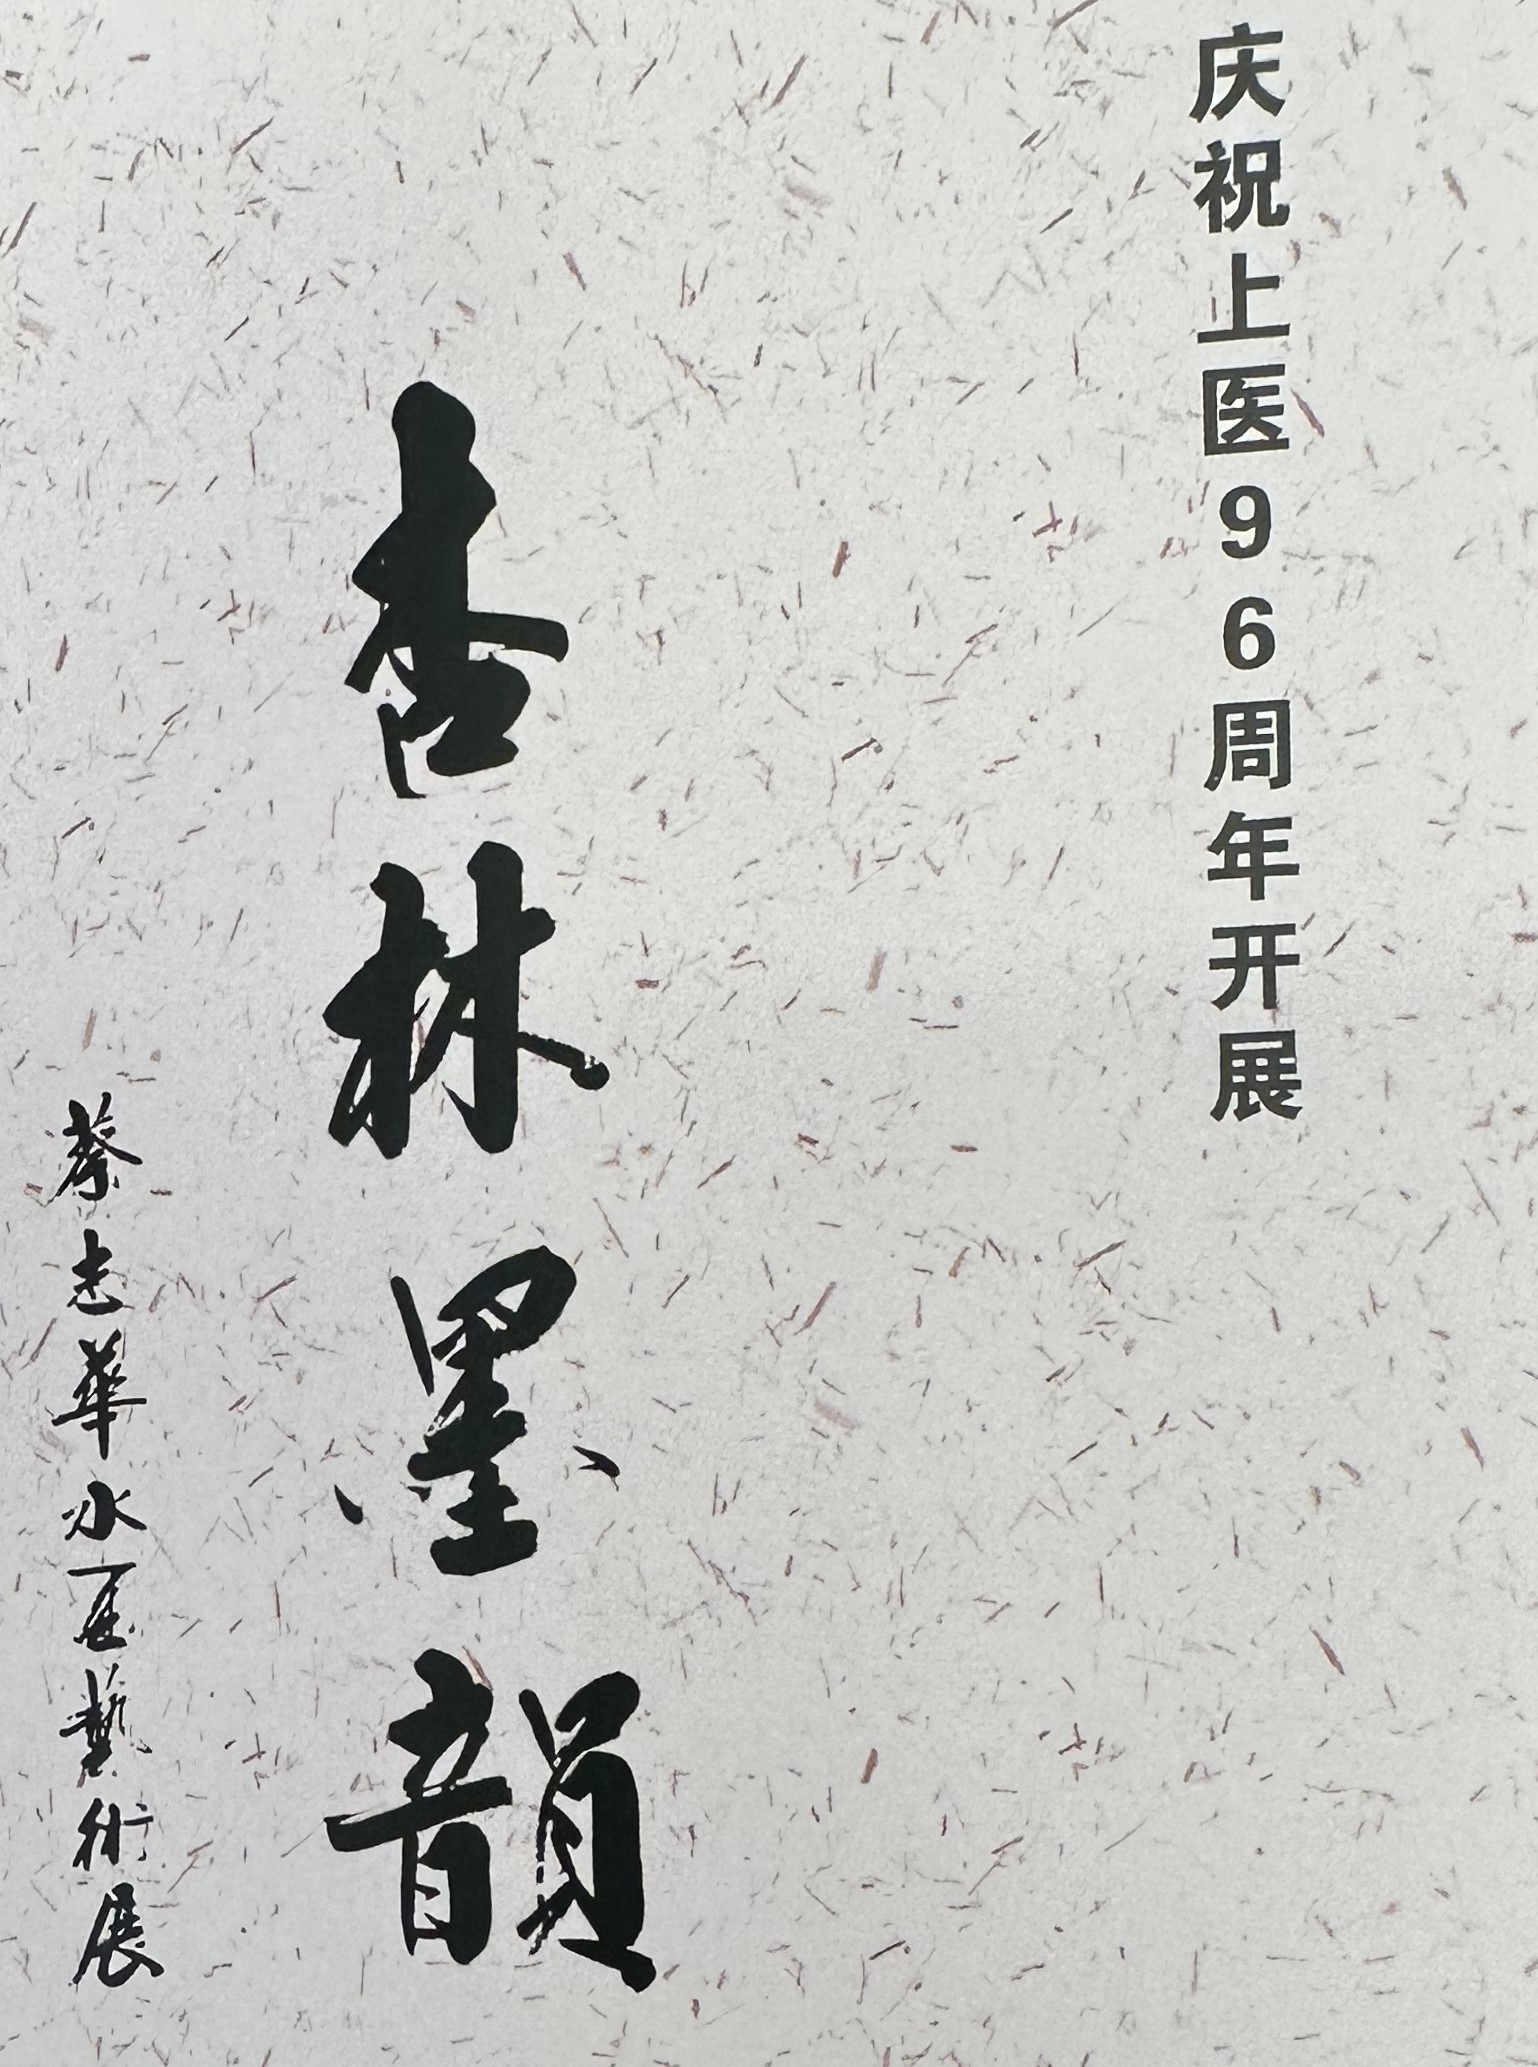 庆祝上医96周年开展
杏林墨韻
蔡志華水画藝術展